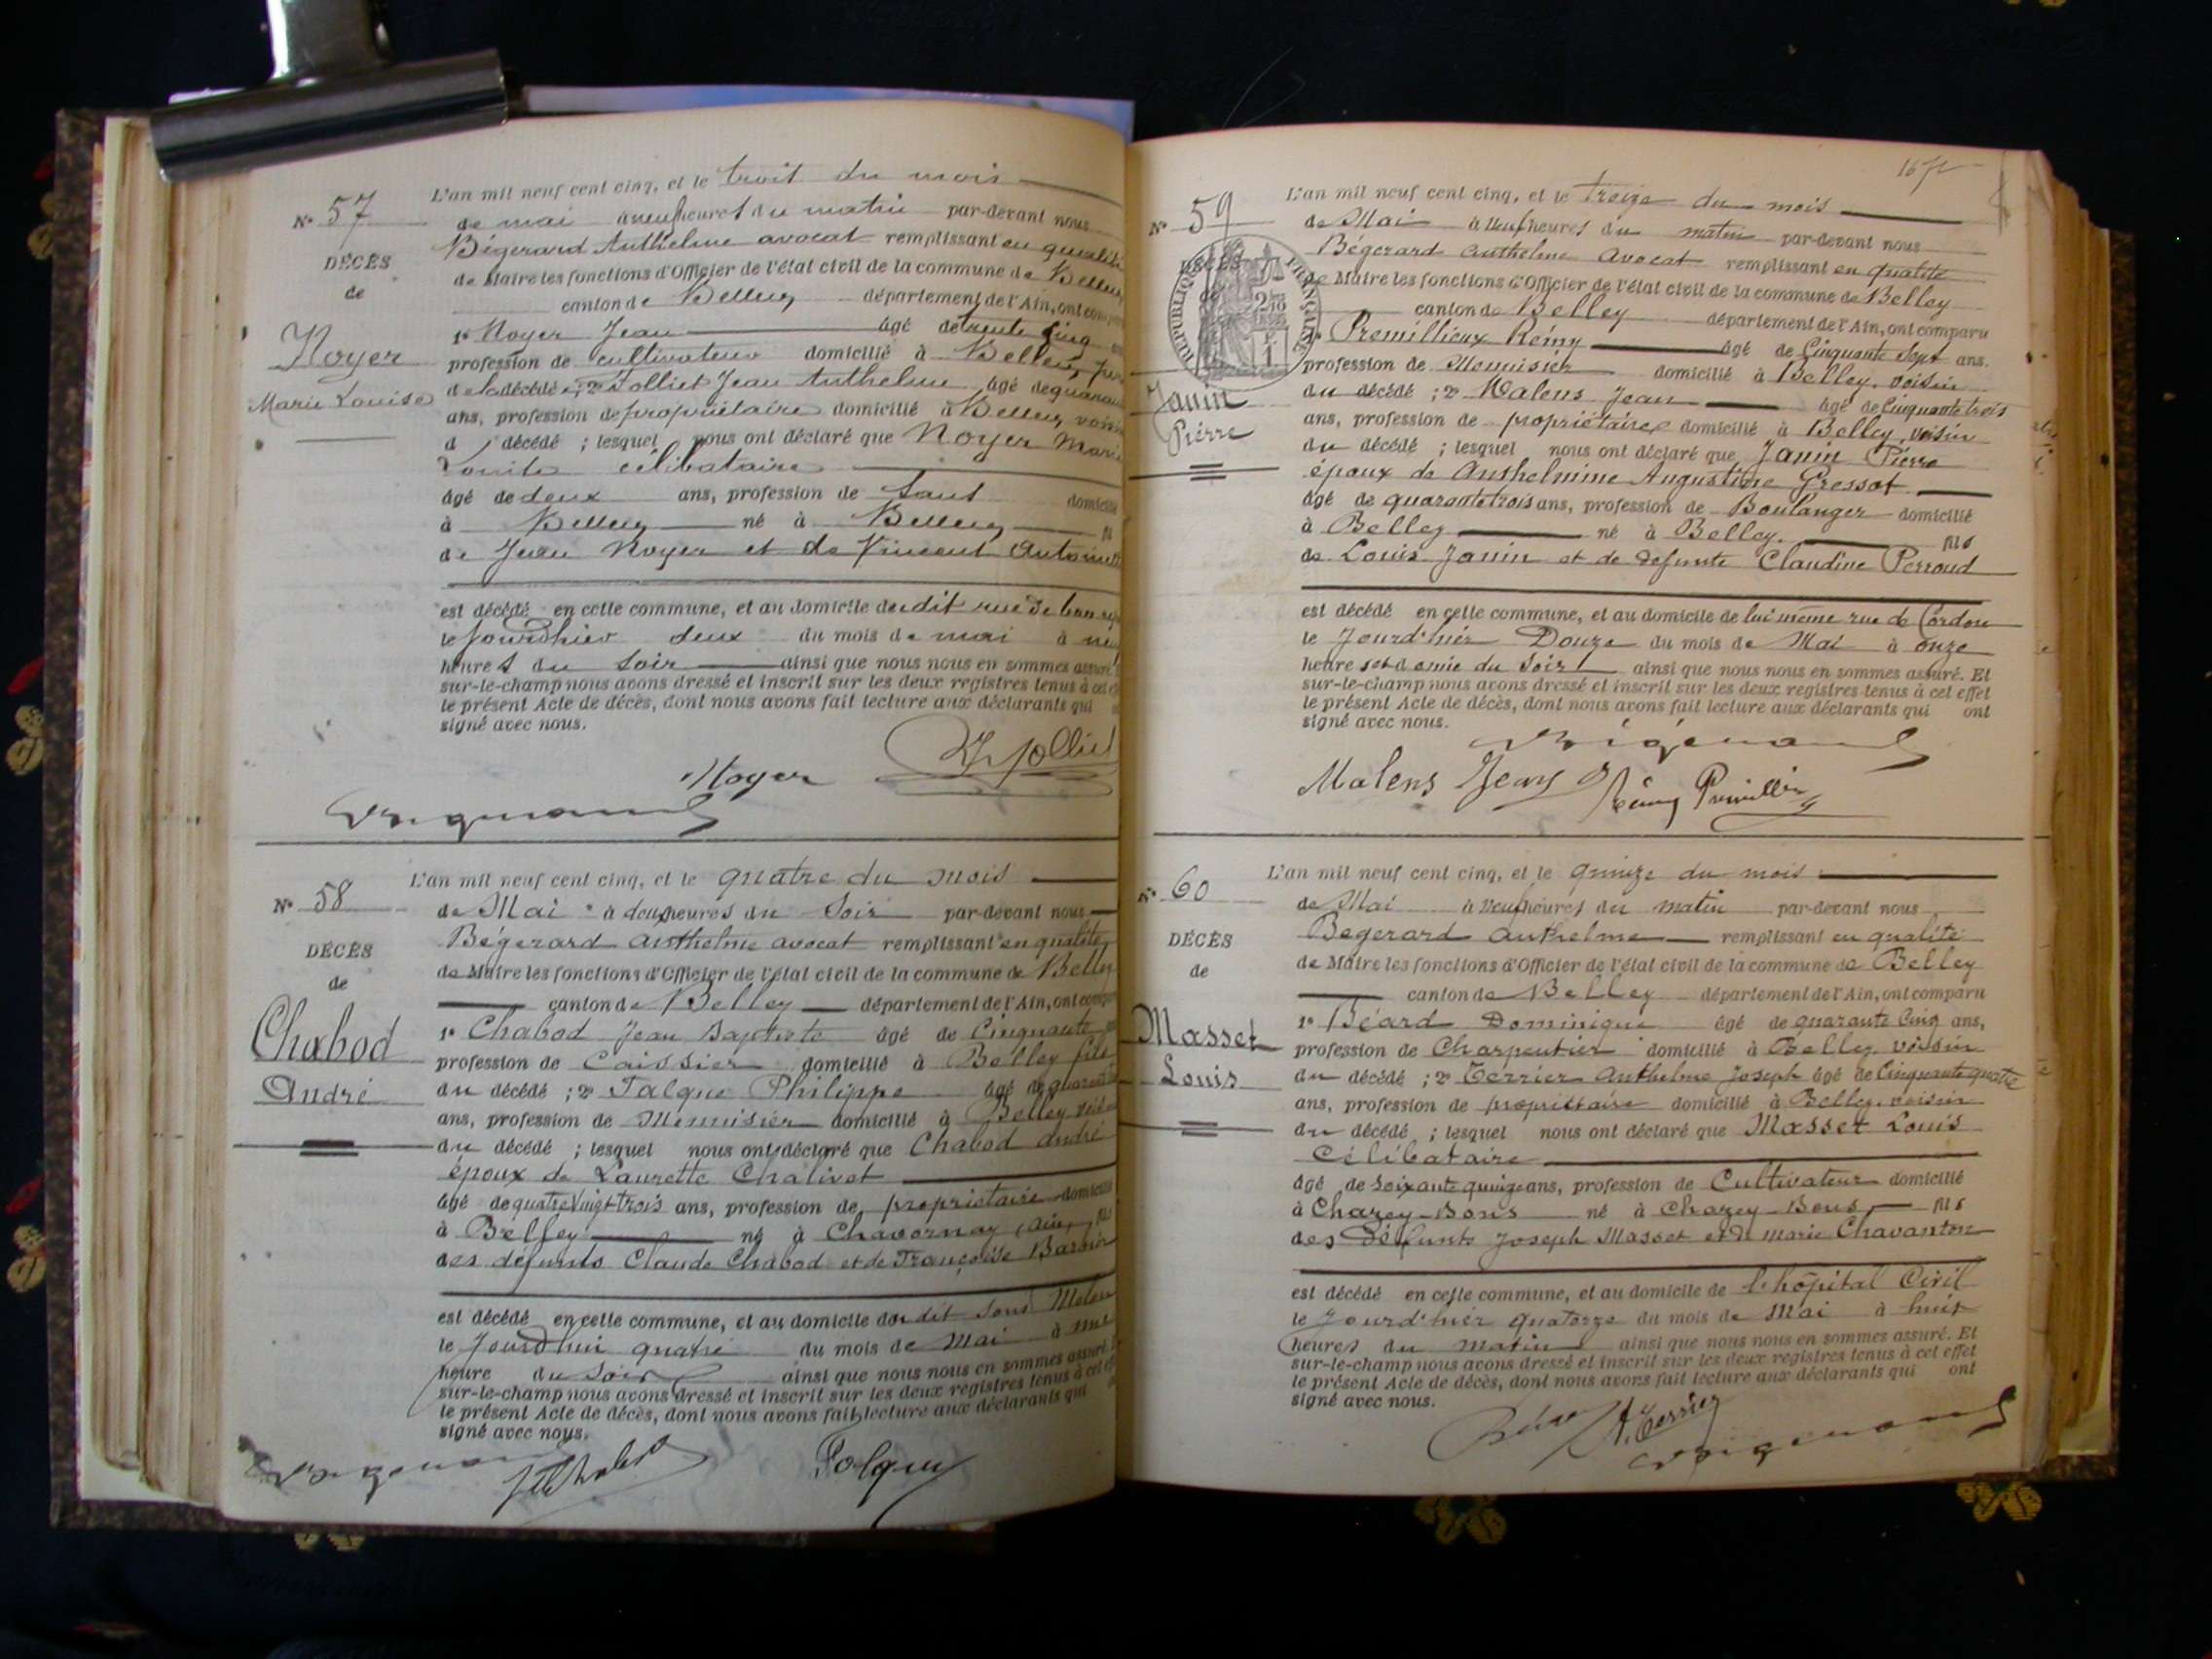 N° 57
DÉCÈS
de
Noyer
Marie Louise
L'an mil neuf cent cinq, et le trois du mois
de mai à neuf heures du matin par-devant nous
Bégerard Anthelme avocat remplissant en qualité
de Maire les fonctions d'Officier de l'état civil de la commune de Belley
canton de Belley département de l'Ain, ont comparu
1° Noyer Jean âgé de trente cinq
profession de cultivateur domicilié à Belley, père
de la décédée ; 2° Jolliet Jean Anthelme âgé de quarante
ans, profession de propriétaire domicilié à Belley voisin
d décédé ; lesquel nous ont déclaré que Noyer Marie
Louise célibataire
âgé de deux ans, profession de sans domicilié
à Belley né à Belley fil
de Jean Noyer et de Vincent Antoinette
est décédé en cette commune, et au domicile du dit rue de
le jourd'hier deux du mois de mai à neuf
heures du soir ainsi que nous nous en sommes assuré.
sur-le-champ nous avons dressé et inscrit sur les deux registres tenus à cet effet
le présent Acte de décès, dont nous avons fait lecture aux déclarants qui
signé avec nous.
Noyer Jolliet
N° 58
DÉCÈS
de
Chabod
André
L'an mil neuf cent cinq, et le quatre du mois
de Mai à deux heures du Soir par-devant nous
Bégerard Anthelme avocat remplissant en qualité
de Maire les fonctions d'Officier de l'état civil de la commune de Belley
canton de Belley département de l'Ain, ont comparu
1° Chabod Jean Baptiste âgé de Cinquante
profession de Caissier domicilié à Belley fils
du décédé ; 2° Falque Philippe âgé de quarante
ans, profession de Menuisier domicilié à Belley voisin
du décédé ; lesquel nous ont déclaré que Chabod André
époux de Laurette Chalivet
âgé de quatre vingt-trois ans, profession de propriétaire domicilié
à Belley né à Chavornay (Ain) fils
des défunts Claude Chabod et de Françoise Barbier
est décédé en cette commune, et au domicile du dit
le Jourd'hui quatre du mois de Mai à une
heure du Soir ainsi que nous nous en sommes assuré.
sur-le-champ nous avons dressé et inscrit sur les deux registres tenus à cet effet
le présent Acte de décès, dont nous avons fait lecture aux déclarants qui
signé avec nous.
Falque
N° 59
DÉCÈS
RÉPUBLIQUE FRANÇAISE
Janin
Pierre
L'an mil neuf cent cinq, et le Treize du mois
de Mai à Neuf heures du matin par-devant nous
Bégerard Anthelme Avocat remplissant en qualité
de Maire les fonctions d'Officier de l'état civil de la commune de Belley
canton de Belley département de l'Ain, ont comparu
1° Premillieux Rémy âgé de Cinquante Sept ans.
profession de Menuisier domicilié à Belley, voisin
du décédé ; 2° Malens Jean âgé de Cinquante trois
ans, profession de propriétaire domicilié à Belley, voisin
du décédé ; lesquel nous ont déclaré que Janin Pierre
époux de Anthelmine Augustine Gressot
âgé de quarante trois ans, profession de Boulanger domicilié
à Belley né à Belley. fils
de Louis Janin et de défunte Claudine Perroud
est décédé en cette commune, et au domicile de lui même rue de Cordon
le Jourd'hier Douze du mois de Mai à onze
heures et demie du Soir ainsi que nous nous en sommes assuré. Et
sur-le-champ nous avons dressé et inscrit sur les deux registres tenus à cet effet
le présent Acte de décès, dont nous avons fait lecture aux déclarants qui ont
signé avec nous.
Malens Jean Rémy Premillieux
N° 60
DÉCÈS
de
Masset
Louis
L'an mil neuf cent cinq, et le quinze du mois
de Mai à Neuf heures du matin par-devant nous
Bégerard Anthelme remplissant en qualité
de Maire les fonctions d'Officier de l'état civil de la commune de Belley
canton de Belley département de l'Ain, ont comparu
1° Béard Dominique âgé de quarante Cinq ans,
profession de Charpentier domicilié à Belley voisin
du décédé ; 2° Terrier Anthelme Joseph âgé de Cinquante quatre
ans, profession de propriétaire domicilié à Belley, voisin
du décédé ; lesquel nous ont déclaré que Masset Louis
Célibataire
âgé de Soixante quinze ans, profession de Cultivateur domicilié
à Chazey-Bons né à Chazey-Bons fils
des Défunts Joseph Masset et de Marie Chavanton
est décédé en cette commune, et au domicile de l'hôpital Civil
le Jourd'hier quatorze du mois de Mai à huit
heures du matin ainsi que nous nous en sommes assuré. Et
sur-le-champ nous avons dressé et inscrit sur les deux registres tenus à cet effet
le présent Acte de décès, dont nous avons fait lecture aux déclarants qui ont
signé avec nous.
Béard A. Terrier